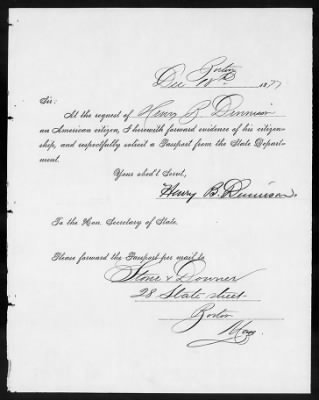 Boston
Dec 10th 1877
Sir:
At the request of Henry B. Dennison
an American citizen, I herewith forward evidence of his citizen-
ship, and respectfully solicit a Passport from the State Depart-
ment.
Your obed't Servt,
Henry B. Dennison.
To the Hon. Secretary of State.
Please forward the Passport per mail to
Stone & Downer
28 State street
Boston
Mass.